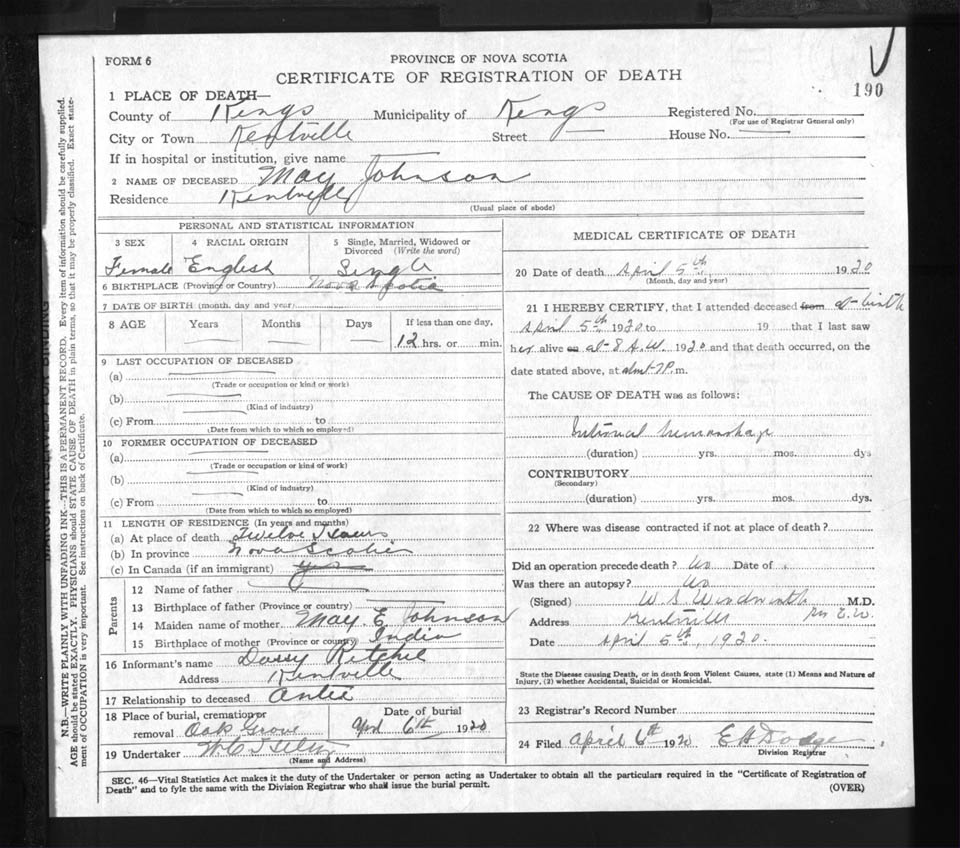 FORM 6
PROVINCE OF NOVA SCOTIA
CERTIFICATE OF REGISTRATION OF DEATH
190
1 PLACE OF DEATH—
County of Kings Municipality of Kings Registered No.
(For use of Registrar General only)
City or Town Kentville Street House No.
If in hospital or institution, give name
2 NAME OF DECEASED May Johnson
Residence Kentville
(Usual place of abode)
PERSONAL AND STATISTICAL INFORMATION
3 SEX 4 RACIAL ORIGIN 5 Single, Married, Widowed or Divorced (Write the word)
Female English Single
6 BIRTHPLACE (Province or Country) Nova Scotia
7 DATE OF BIRTH (month, day and year)
8 AGE Years Months Days If less than one day,
12 hrs. or min.
9 LAST OCCUPATION OF DECEASED
(a)
(Trade or occupation or kind or work)
(b)
(Kind of industry)
(c) From to
(Date from which to which so employed)
10 FORMER OCCUPATION OF DECEASED
(a)
(Trade or occupation or kind of work)
(b)
(Kind of industry)
(c) From to
(Date from which to which so employed)
11 LENGTH OF RESIDENCE (In years and months)
(a) At place of death Twelve Hours
(b) In province Nova Scotia
(c) In Canada (if an immigrant) yes
Parents
12 Name of father
13 Birthplace of father (Province or country)
14 Maiden name of mother May E Johnson
15 Birthplace of mother (Province or country) India
16 Informant's name Ritchie
Address Kentville
17 Relationship to deceased Antie
18 Place of burial, cremation or removal Oak Grove
Date of burial April 6th 1920
19 Undertaker
(Name and Address)
MEDICAL CERTIFICATE OF DEATH
20 Date of death April 5th 1920
(Month, day and year)
21 I HEREBY CERTIFY, that I attended deceased from at birth
April 5th 1920 to 19 that I last saw
her alive on at 8 A.M. 1920 and that death occurred, on the
date stated above, at abut 7 P. m.
The CAUSE OF DEATH was as follows:
(duration) yrs. mos. dys
CONTRIBUTORY
(Secondary)
(duration) yrs. mos. dys.
22 Where was disease contracted if not at place of death?
Did an operation precede death? No Date of
Was there an autopsy? No
(Signed) W S Woodworth M.D.
Address Kentville Per E.W.
Date April 5th, 1920.
State the Disease causing Death, or in death from Violent Causes, state (1) Means and Nature of
Injury, (2) whether Accidental, Suicidal or Homicidal.
23 Registrar's Record Number
24 Filed April 6th 1920 E H Dodge
Division Registrar
SEC. 46—Vital Statistics Act makes it the duty of the Undertaker or person acting as Undertaker to obtain all the particulars required in the "Certificate of Registration of
Death" and to fyle the same with the Division Registrar who shall issue the burial permit.
(OVER)
N.B.—WRITE PLAINLY WITH UNFADING INK—THIS IS A PERMANENT RECORD. Every item of information should be carefully supplied.
AGE should be stated EXACTLY. PHYSICIANS should STATE CAUSE OF DEATH in plain terms, so that it may be properly classified. Exact statement of OCCUPATION is very important. See instructions on back of Certificate.